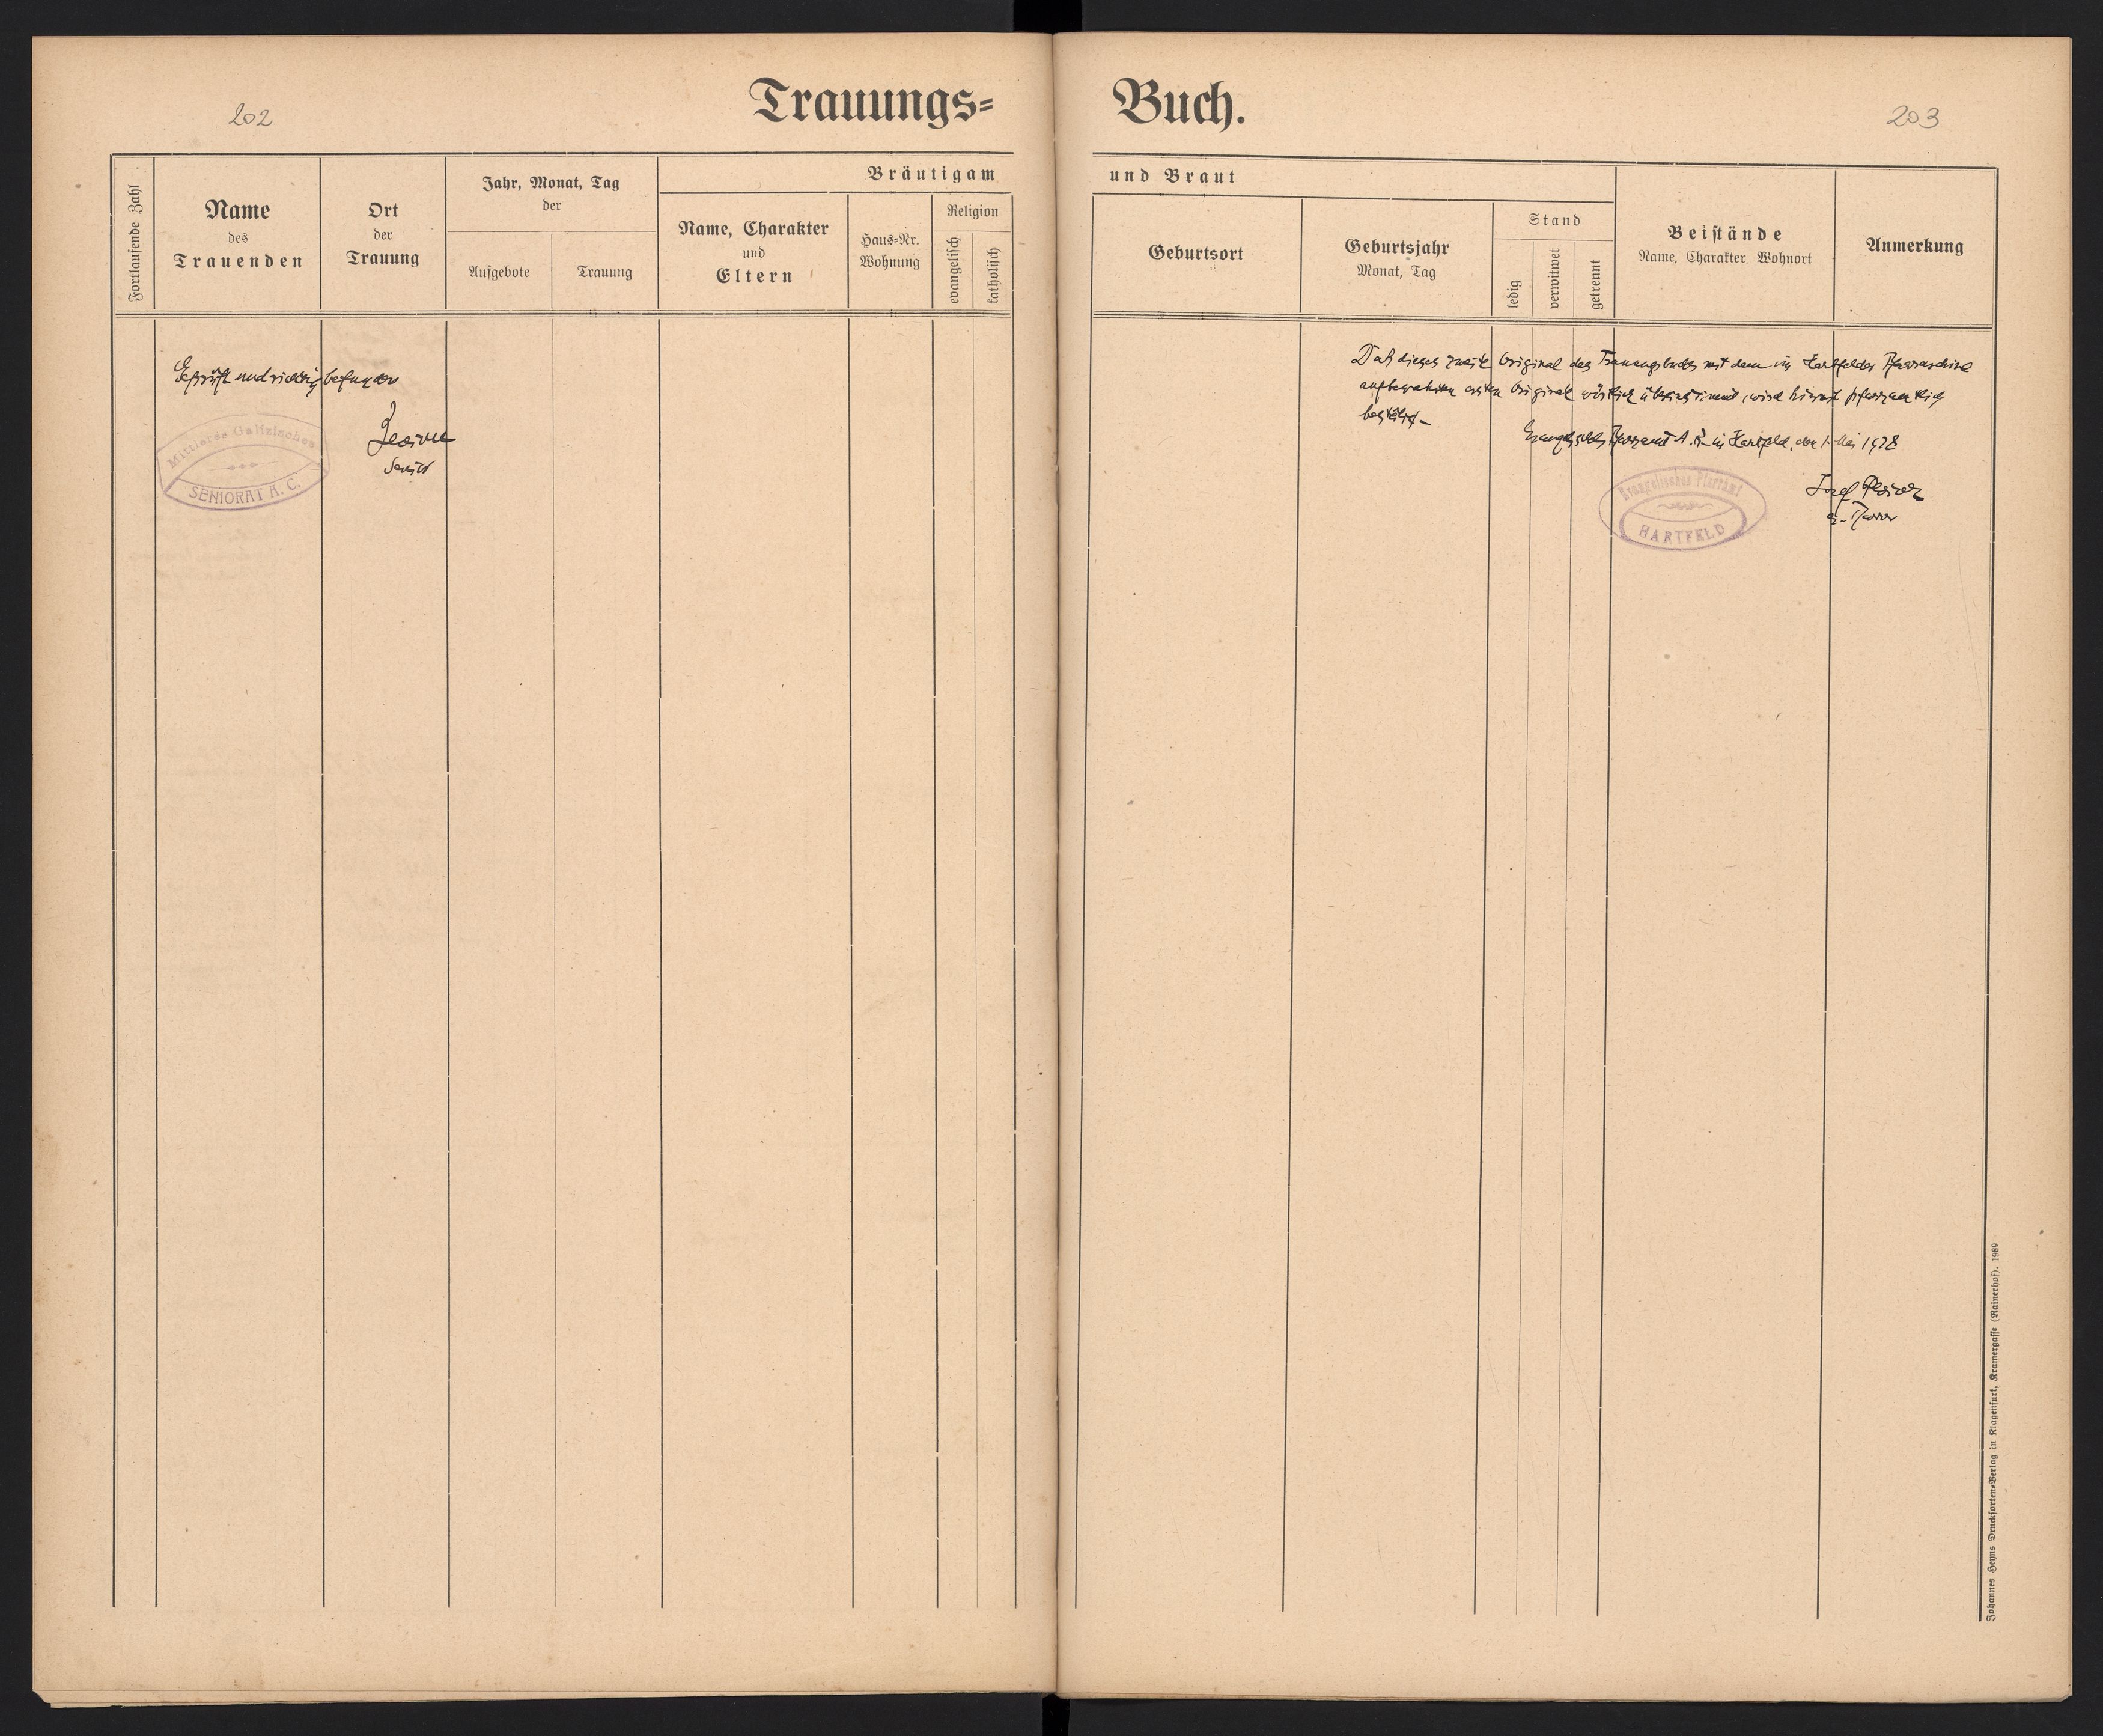 202
Trauungs=
Fortlaufende Zahl
Name
des
Trauenden
Ort
der
Trauung
Jahr, Monat, Tag
der
Aufgebote
Trauung
Bräutigam
Name, Charakter
und
Eltern
Haus-Nr.
Wohnung
Religion
evangelisch
katholisch
Geprüft und richtig befunden
Senior
Mittleres Galizisches
SENIORAT A. C.
Buch.
203
und Braut
Geburtsort
Geburtsjahr
Monat, Tag
Stand
ledig
verwitwet
getrennt
Beistände
Name, Charakter, Wohnort
Anmerkung
Daß dieses zweite Original des Trauungsbuches mit dem im Hartfelder Pfarrarchive
aufbewahrten ersten Original wörtlich übereinstimmt, wird hiermit pfarramtlich
bestätigt.
Evangelisches Pfarramt A. B. in Hartfeld, den 1. Mai 1928
Evangelisches Pfarramt
HARTFELD
Josef
ev. Pfarrer
Johannes Heyns Drucksorten-Verlag in Klagenfurt, Kramergasse (Rainerhof). 1989